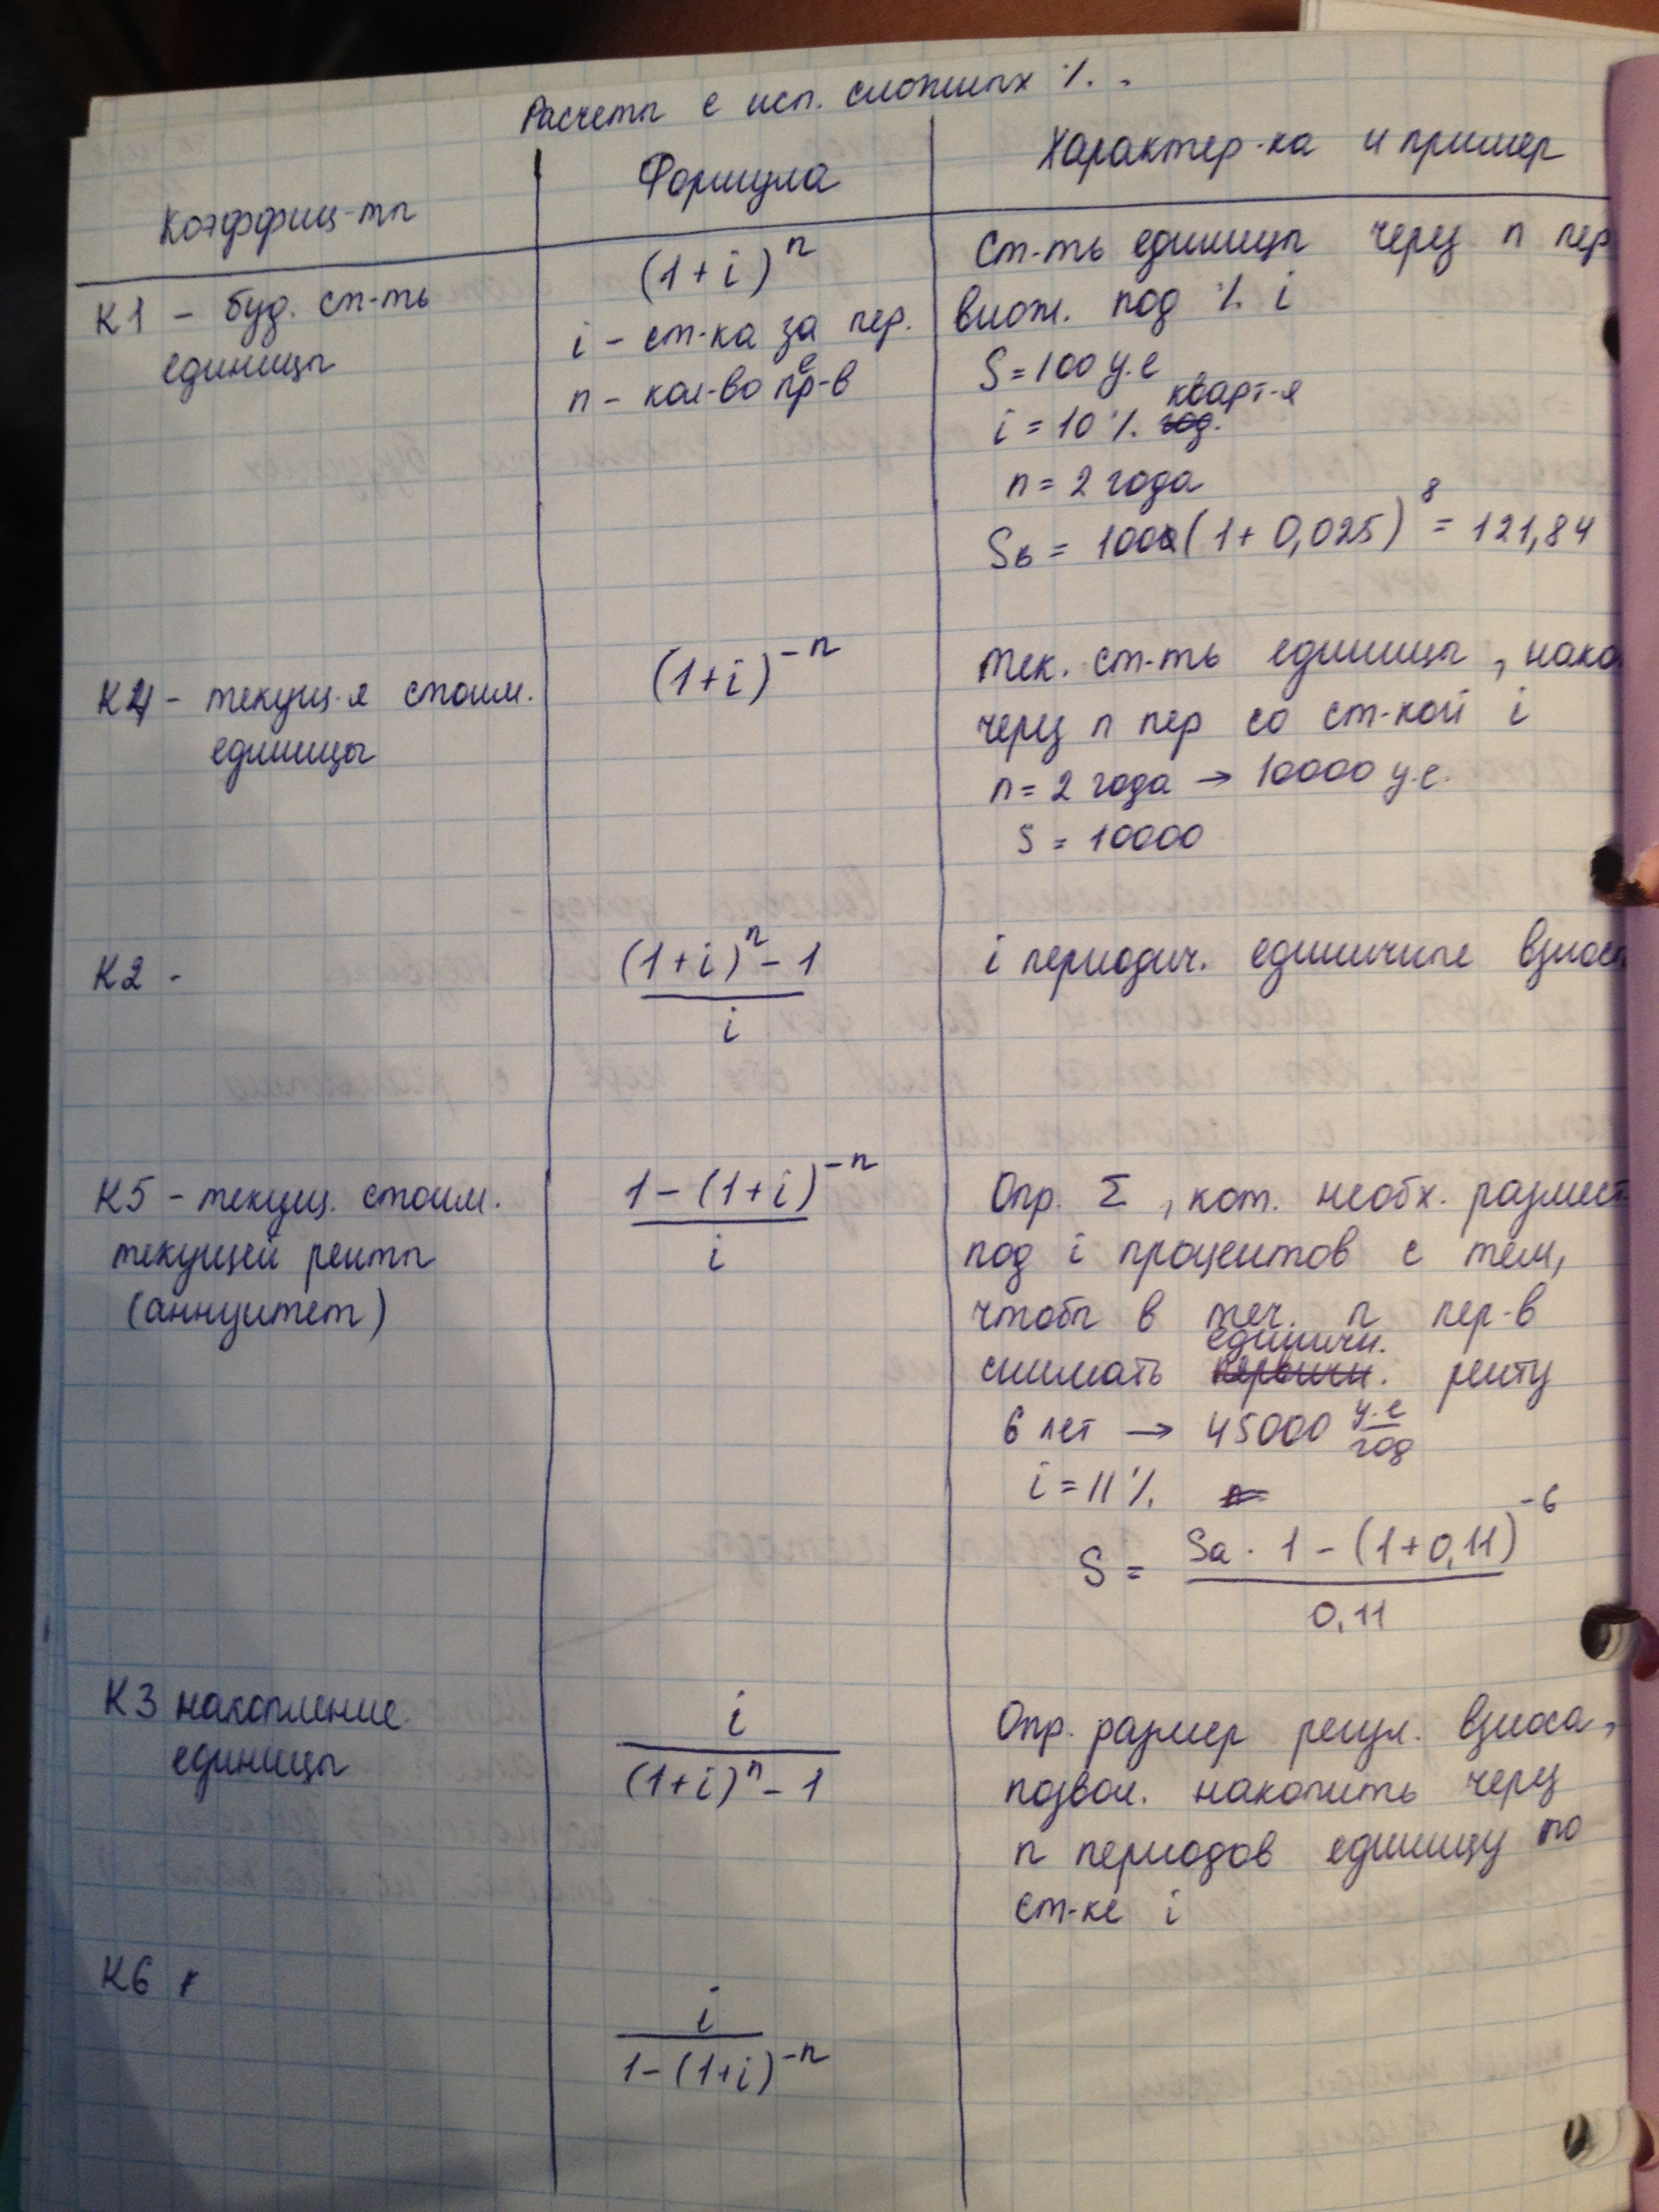 Расчеты с исп. сложных %.
Коэффиц-ты
Формула
Характер-ка и пример
К1 - буд. ст-ть
единицы
(1+i)^n
i - ст-ка за пер.
n - кол-во пер-в
Ст-ть единицы через n пер
влож. под % i
S = 100 у.е
i = 10 % год. кварт-я
n = 2 года
Sб = 100 (1 + 0,025)^8 = 121,84
К4 - текущ-я стоим.
единицы
(1+i)^-n
тек. ст-ть единицы, нако
через n пер со ст-кой i
n = 2 года → 10000 у.е.
S = 10000
К2 -
(1+i)^n - 1
i
i периодич. единичные взнос
К5 - текущ. стоим.
текущей ренты
(аннуитет)
1 - (1+i)^-n
i
Опр. Σ, кот. необх. размест
под i процентов с тем,
чтобы в теч. n пер-в
единичн.
снимать первичн. ренту
6 лет → 45000 у.е/год
i = 11 %
S = Sa · 1 - (1+0,11)^-6
0,11
К3 накопление
единицы
i
(1+i)^n - 1
Опр. размер регул. взноса,
позвол. накопить через
n периодов единицу по
ст-ке i
К6
i
1 - (1+i)^-n